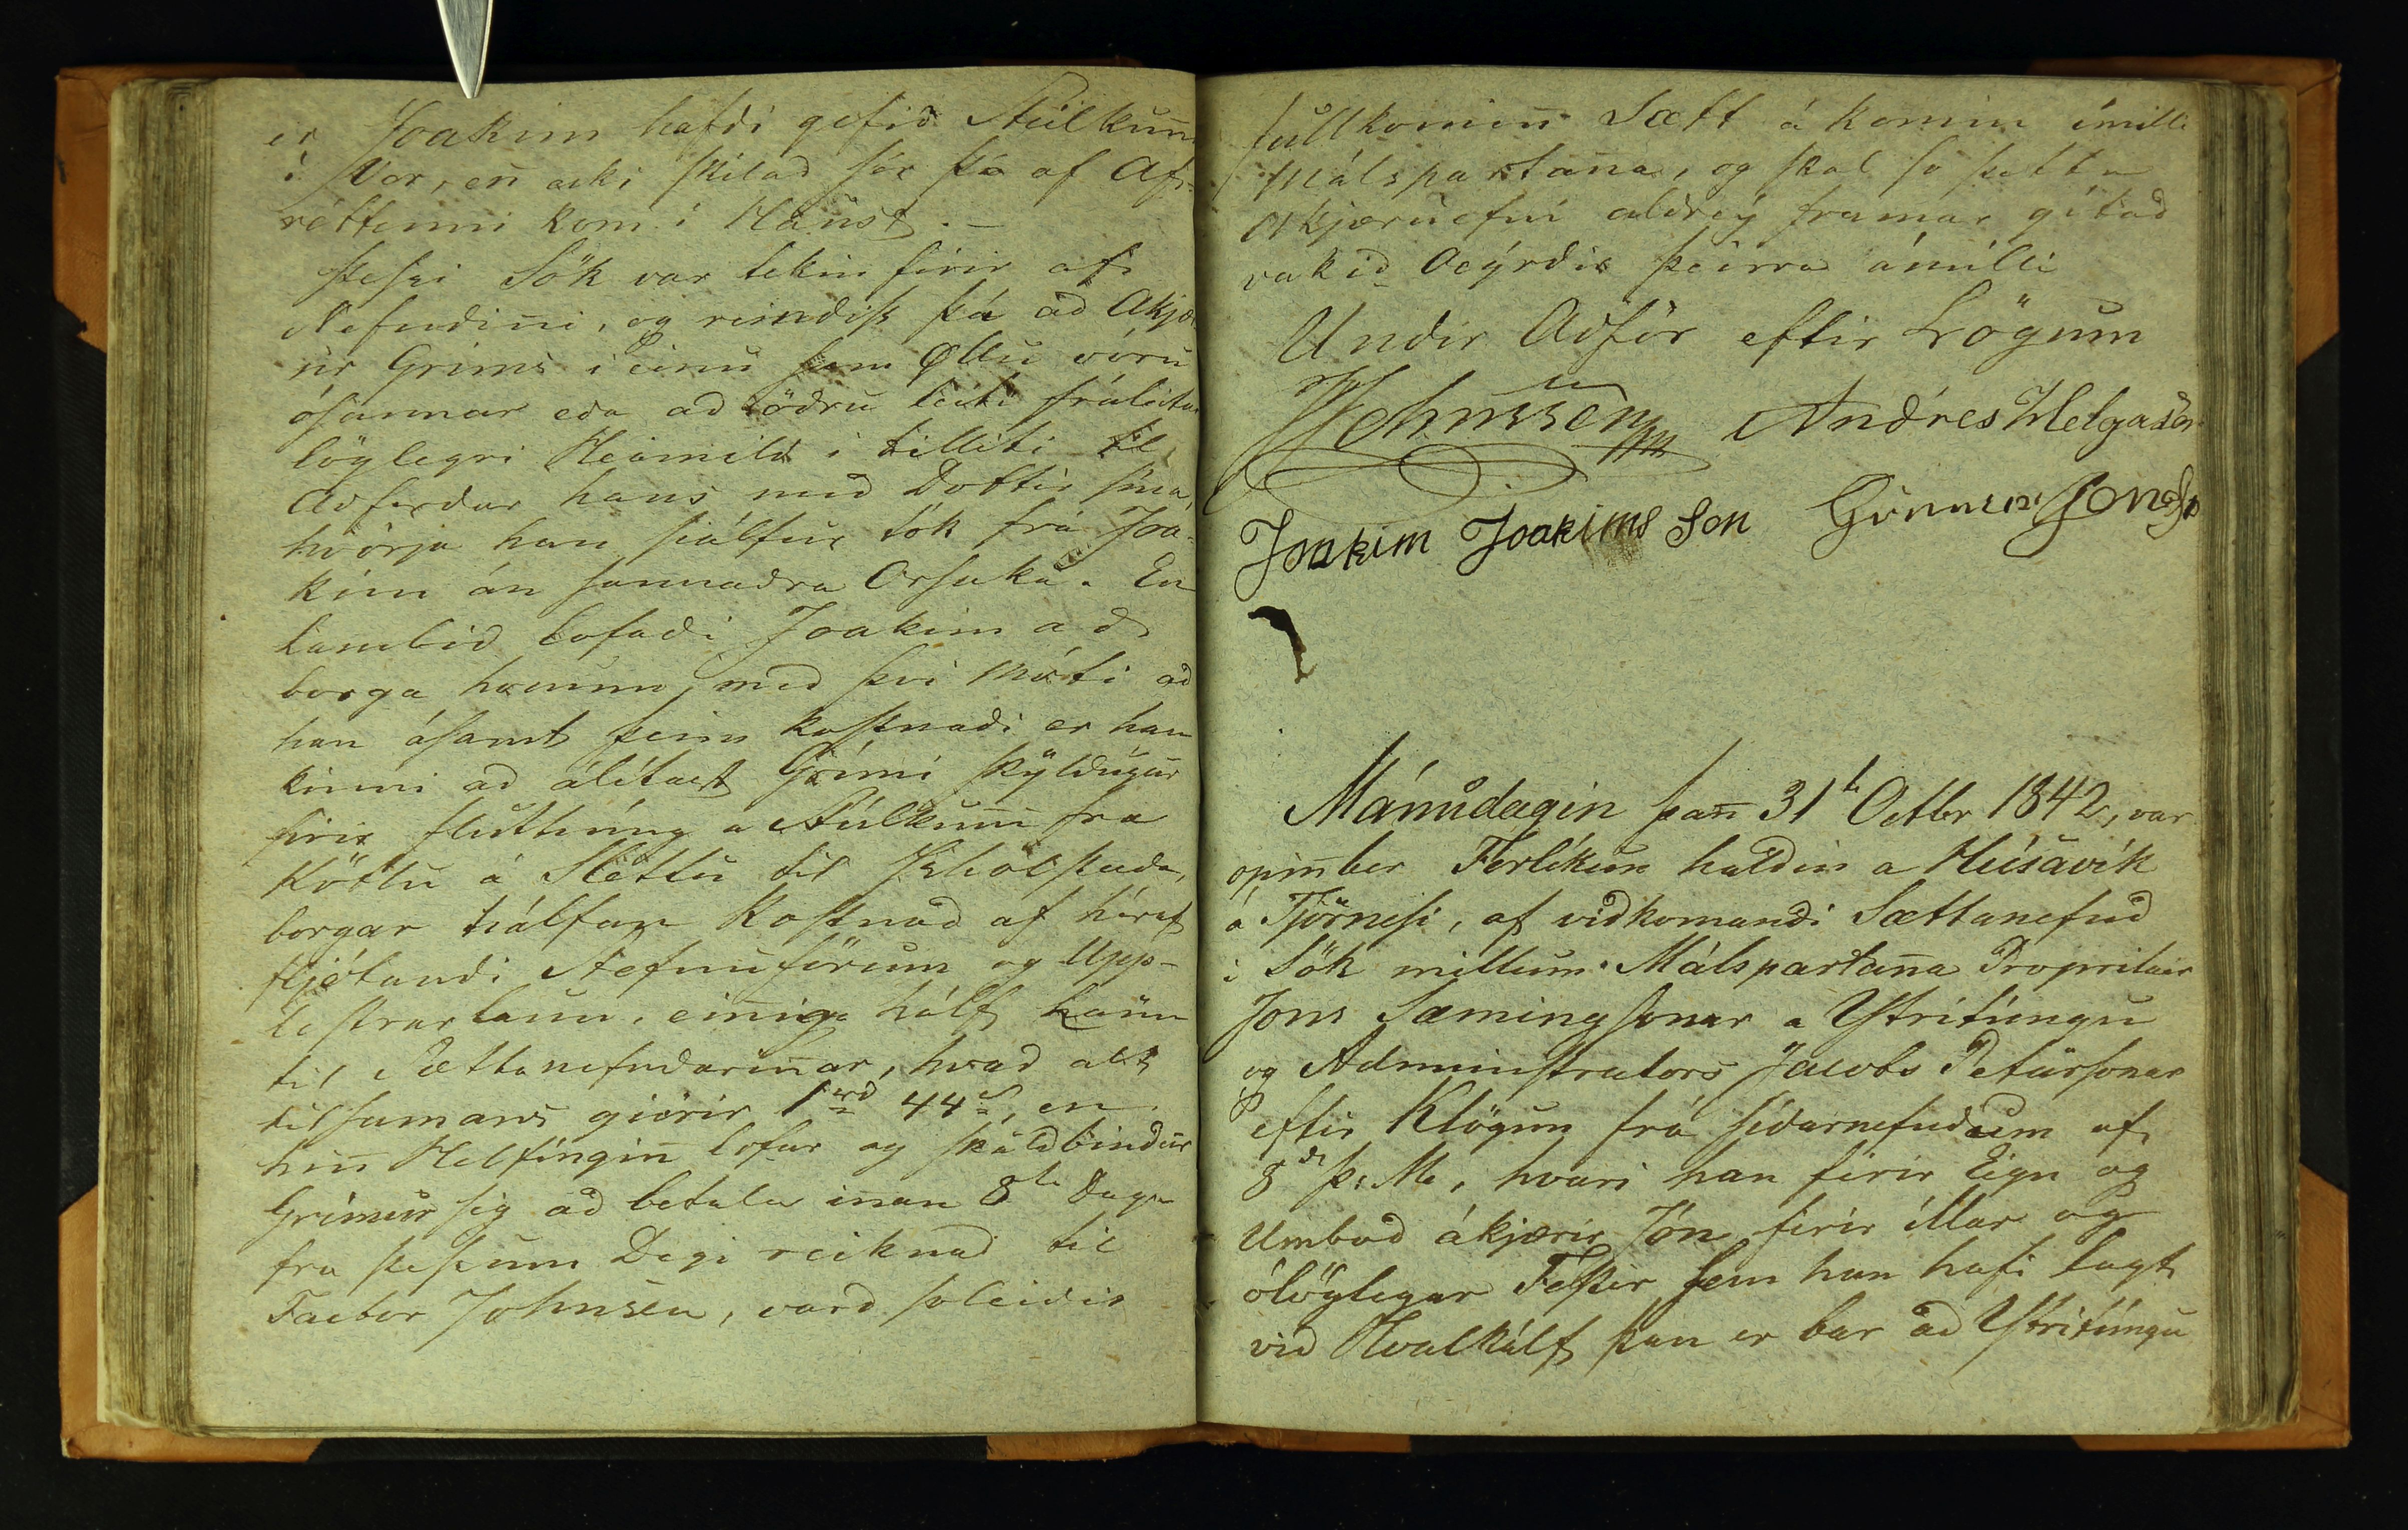 er Joakim hafdi gefid Stúlkuni
í Vor, en̄ ecki skilad sér þá af Af-
réttenni kom i Haúst. —
Þessi Sök var tekin firir af
Nefndin̄i, og reindist þá ad Akjær
ur Gríms i Einú sem Øllu vóru
ósannar eda ad ödru leiti fráleitar
löglegri Heimild i tilliti til
Adferdar hans med Dottir sína,
hvörja han sjálfur tók frá Joa-
kim án sannadra Orsaka. En
lambid lofadi Joakim ad
borga honum, med því móti ad
han ásamt þeim kostnadi er han
kinni ad álítast Grími skÿldúgur
firir flúttníng a Stúlkuni fra
Köttlu á Sléttu til Ishólsstada,
borgar hálfan Kostnad af héraf
fljótandi Stefnuförum og Upp-
lestrarlaun, einig hálf laun
til Sættanefndarin̄ar, hvad alt
tilsamans giörir 1 rd 44 s, en
hin̄ Helfíngin̄ lofar og skuldbindur
Grímur sig ad betala in̄an 8ta Daga
fra þessum Degi reiknad til
Factor Johnsen, vard soleidis
fullkomin̄ Sætt á komin ímilli
Málspartan̄a, og skal so þetta
Akjæruefni aldreÿ framar gétad
vakid Oeÿrdir þeirra ámilli
Undir Adför eftir Lögum
Johnssen Andres Helgason
Joakim Joakims Son Grimur Jonsson
Mánúdagin þan̄ 31t Octbr 1842, var
opin̄ber Forlíkun haldin a Húsavík
á Tjörnesi, af vidkomandi Sættanefnd
i Sök millum Málspartan̄a Propritair
Jons Sæmingssonar a Ytritúngu
og Administrators Jacobs Petúrssonar
eftir Klögun frá sídarnefndum af
8da þ: M:, hvari han firir Eign og
Umbod ákjærir Jón firir illar og
ólöglegar Festir sem han hafi lagt
vid Hvalkálf þan er bar ad Ytritúngu